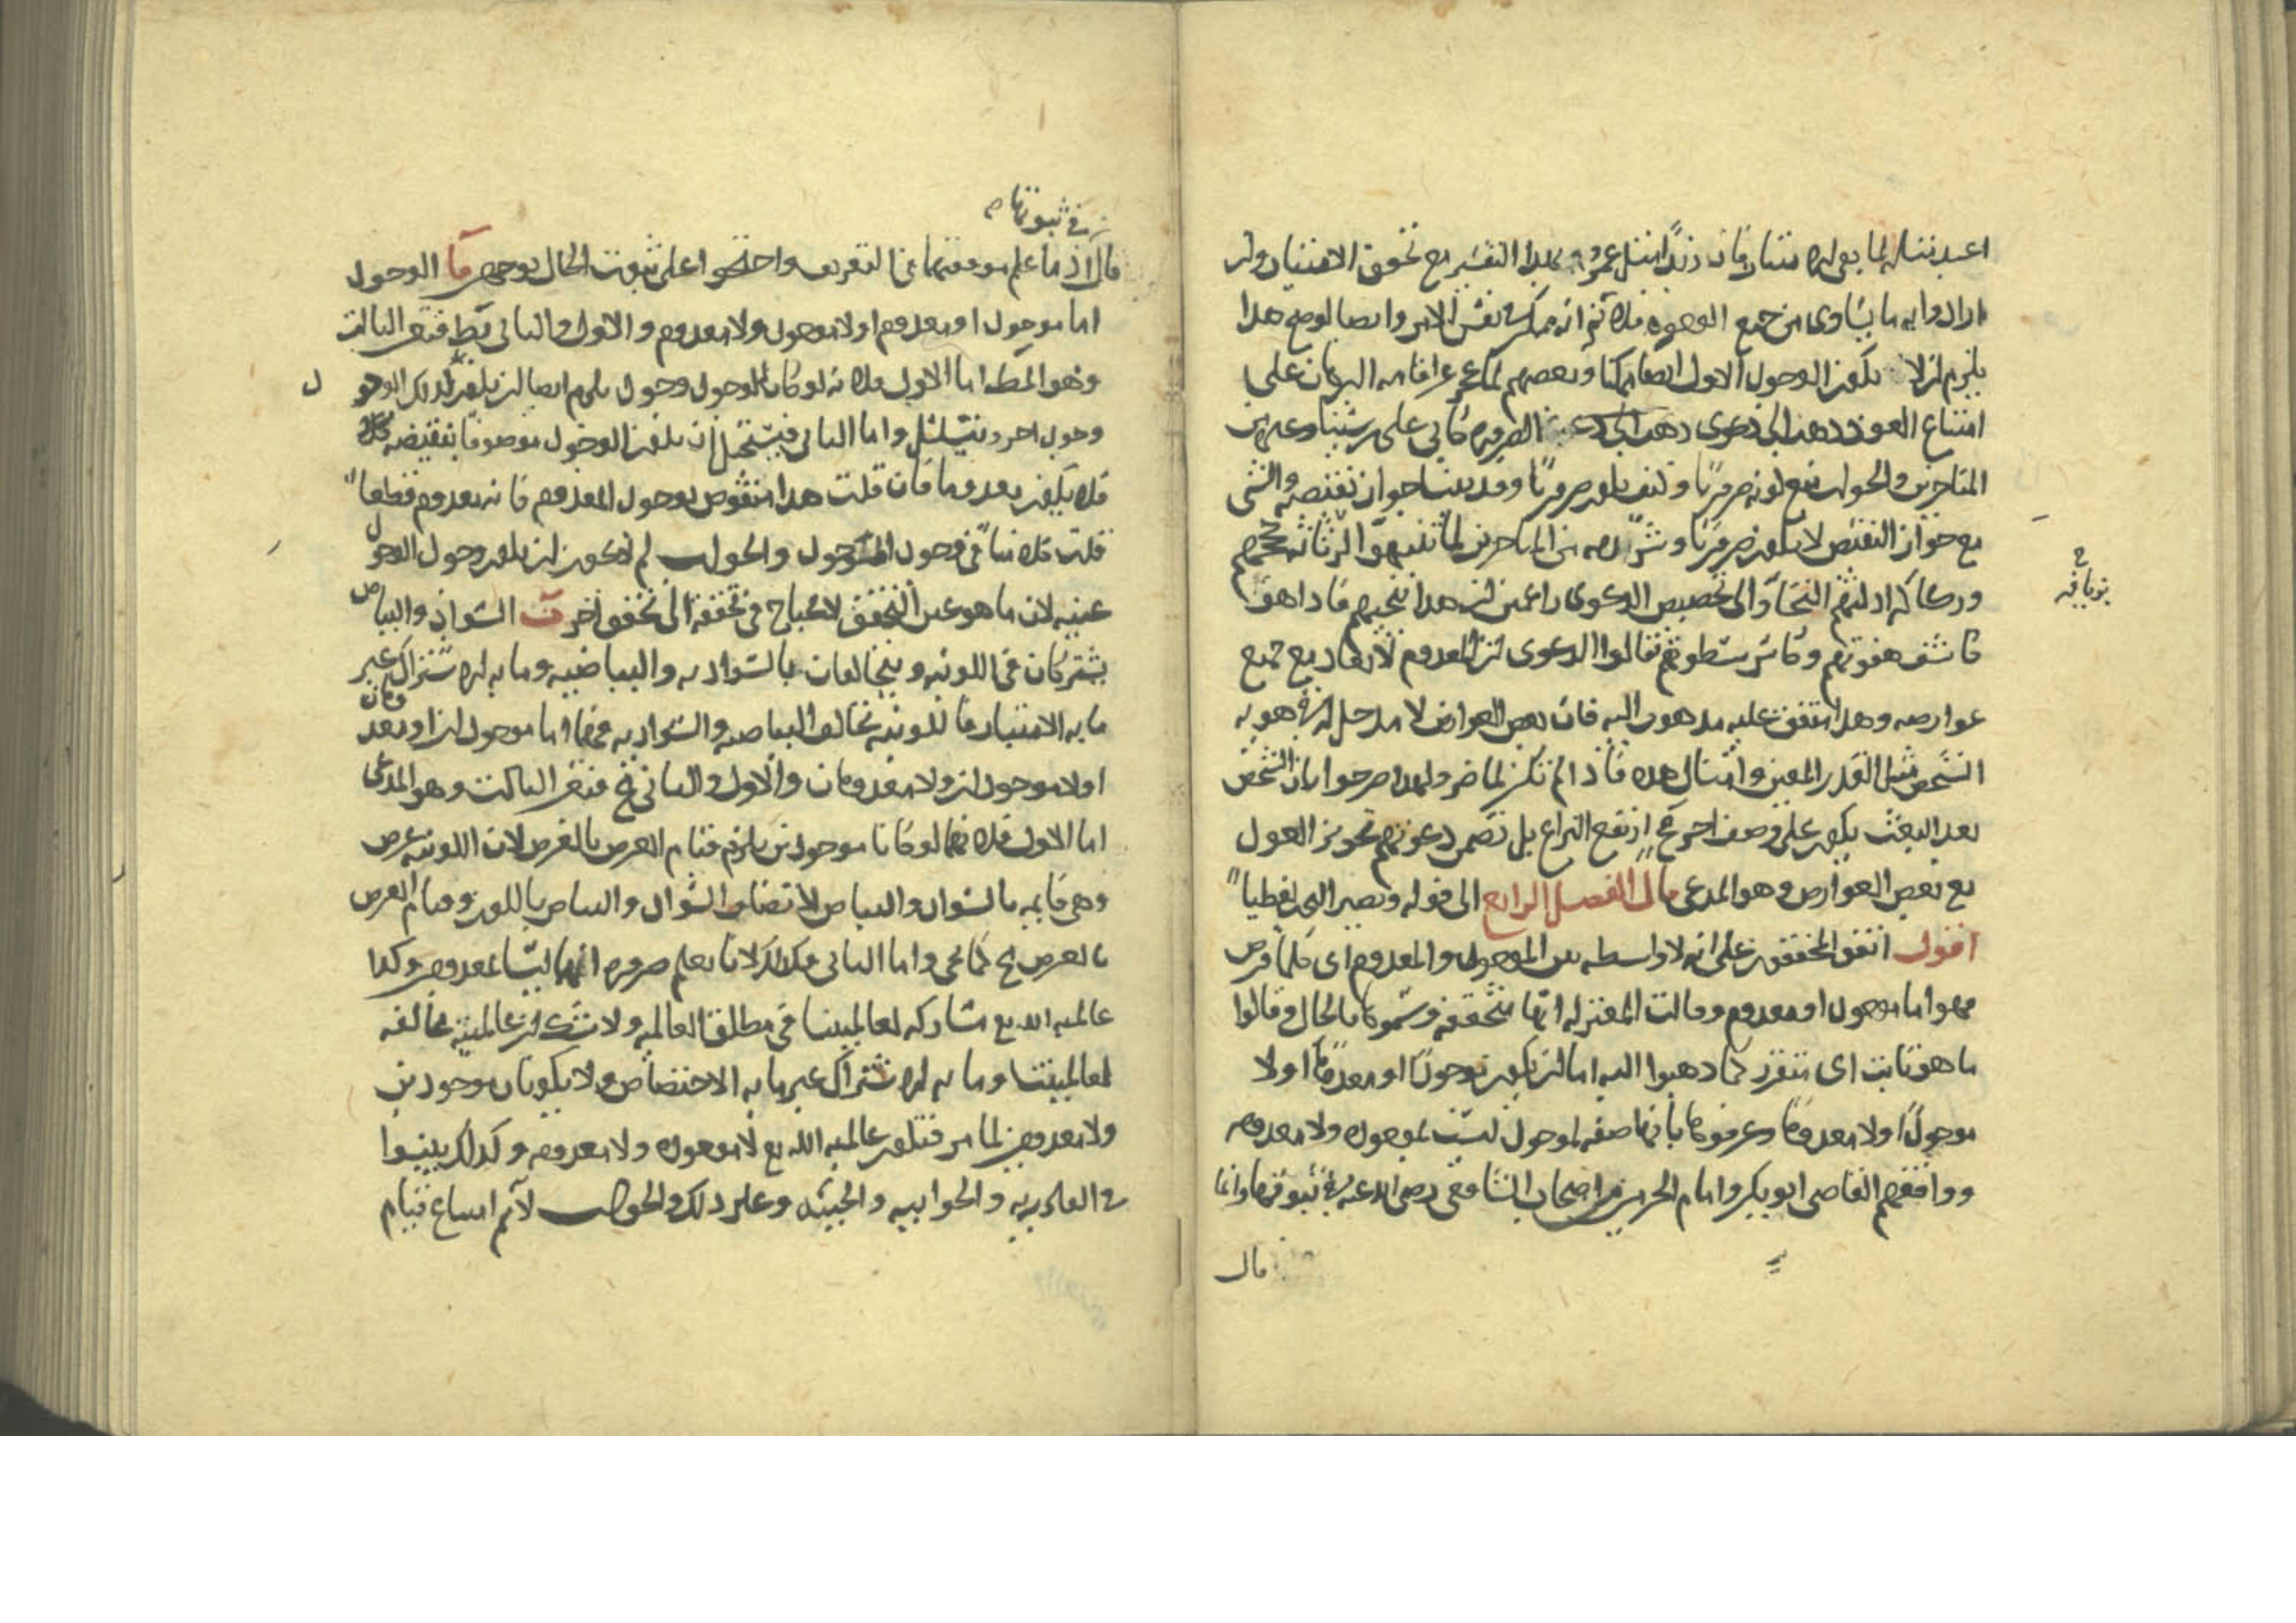 بهذا التفسير مع تحقق الامتياز وان
ارادوا به ما يساوى من جميع الوجوه فلا نم انه ممكن فى نفس الامر وايضا لو صح هذا
يلزم ان لا يكون الوجود الاول ايضا ممكنا وبعضهم لما عجز عن اقامه البرهان على
امتناع العود ذهب الى دعوى الضروره كابى على بن سينا وغيره من
المتاخرين والجواب منع كونه ضروريا وكيف يكون ضروريا وقد بينا جواز نقيضه والشى
مع جواز النقيض لا يكون ضروريا
وركاكه ادلتهم التجاوا الى تخصيص الدعوى زاعمين ان هذا ينجيهم فاذا هو
كاشف هفوتهم وكاسر سطوتهم فقالوا الدعوى ان المعدوم لا يعاد مع جميع
عوارضه وهذا متفق عليه مذهوب اليه فان بعض العوارض لا مدخل له فى هويه
الشخص مثل القدر المعين وامثال هذه فاذا لم تكن لما ضر ولهذا صرحوا بان الشخص
بعد البعث يكون على وصف اخر فح ارتفع النزاع بل تضمن دعوتهم تجويز العود
مع بعض العوارض وهو المدعى قال الفصل الرابع الى قوله ويصير البحث لفظيا
اقول اتفق المحققون على انه لا واسطه بين الموجود والمعدوم اى كلما فرض
فهو اما موجود او معدوم وقالت المعتزله انها متحققه وسموها بالحال وقالوا
ما هو ثابت اى متقرر كما ذهبوا اليه اما ان يكون موجودا او معدوما او لا
موجودا ولا معدوما وعرفوها بانها صفه لموجود ليست بموجوده ولا معدومه
ووافقهم القاضى ابو بكر وامام الحرمين من اصحاب الشافعى رضى الله عنه فى ثبوتها وانما
قال
فى ثبوتها
قال اذ ما علم موافقتهما فى التعريف واحتجوا على ثبوت الحال بوجهين آ الوجود
اما موجود او معدوم او لا موجود ولا معدوم والاول والثانى بط فتعين الثالث
وهو المط اما الاول فلانه لو كان الوجود موجود يلزم ايضا ان يكون لذلك الوجود
وجود اخر ويتسلسل واما الثانى فيستحيل ان يكون الوجود موصوفا بنقيضه
فلا يكون معدوما فان قلت هذا منقوض بوجود المعدوم فانه معدوم قطعا
قلت كلامنا فى وجود الموجود والجواب لم لا يجوز ان يكون وجود الوجود
عينه لان ما هو عين التحقق لا يحتاج فى تحققه الى تحقق اخر ب السواد والبياض
يشتركان فى اللونيه ويتخالفان بالسواديه والبياضيه وما به الاشتراك غير
ما به الامتياز فاللونيه تخالف البياضيه والسواديه فهما اما موجودان او معدومان
او لا موجودان ولا معدومان والاول والثانى بط فتعين الثالث وهو المدعى
اما الاول فلانهما لو كانا موجودين يلزم قيام العرض بالعرض لان اللونيه عرض
وهى قايمه بالسواد والبياض لاتصاف السواد والبياض باللون وقيام العرض
بالعرض مح كما يجى واما الثانى فكذلك لانا نعلم ضروره انهما ليستا بمعدومين وكذا
عالميه الله تع مشاركه لعالميتنا فى مطلق العالميه ولا شك ان عالميته مخالفه
لعالميتنا وما به الاشتراك غير ما به الاختصاص ولا يكونان موجودين
ولا معدومين لما مر فتكون عالميه الله تع لا موجوده ولا معدومه وكذلك بينوا
فى القادريه والجوابيه والحييه وغير ذلك والجواب لا نم امتناع قيام